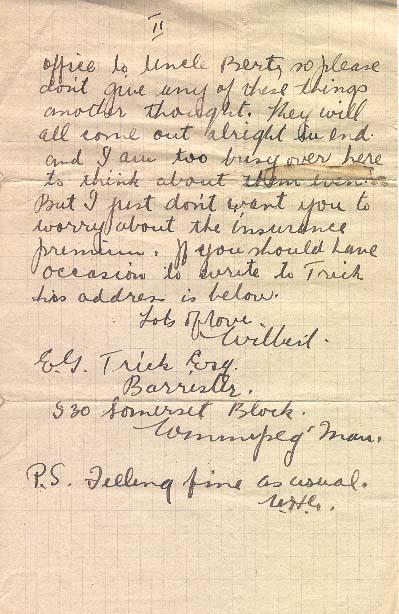 II
office to Uncle Bert, so please
don't give any of these things
another thought. They will
all come out alright in end.
and I am too busy over here
to think about them even.
But I just don't want you to
worry about the insurance
premium. If you should have
occasion to write to Trick
his address is below.
Lots of love.
Wilbert.
E.G. Trick Esq.
Barrister.
530 Somerset Block.
Winnipeg Man.
P.S. Feeling fine as usual.